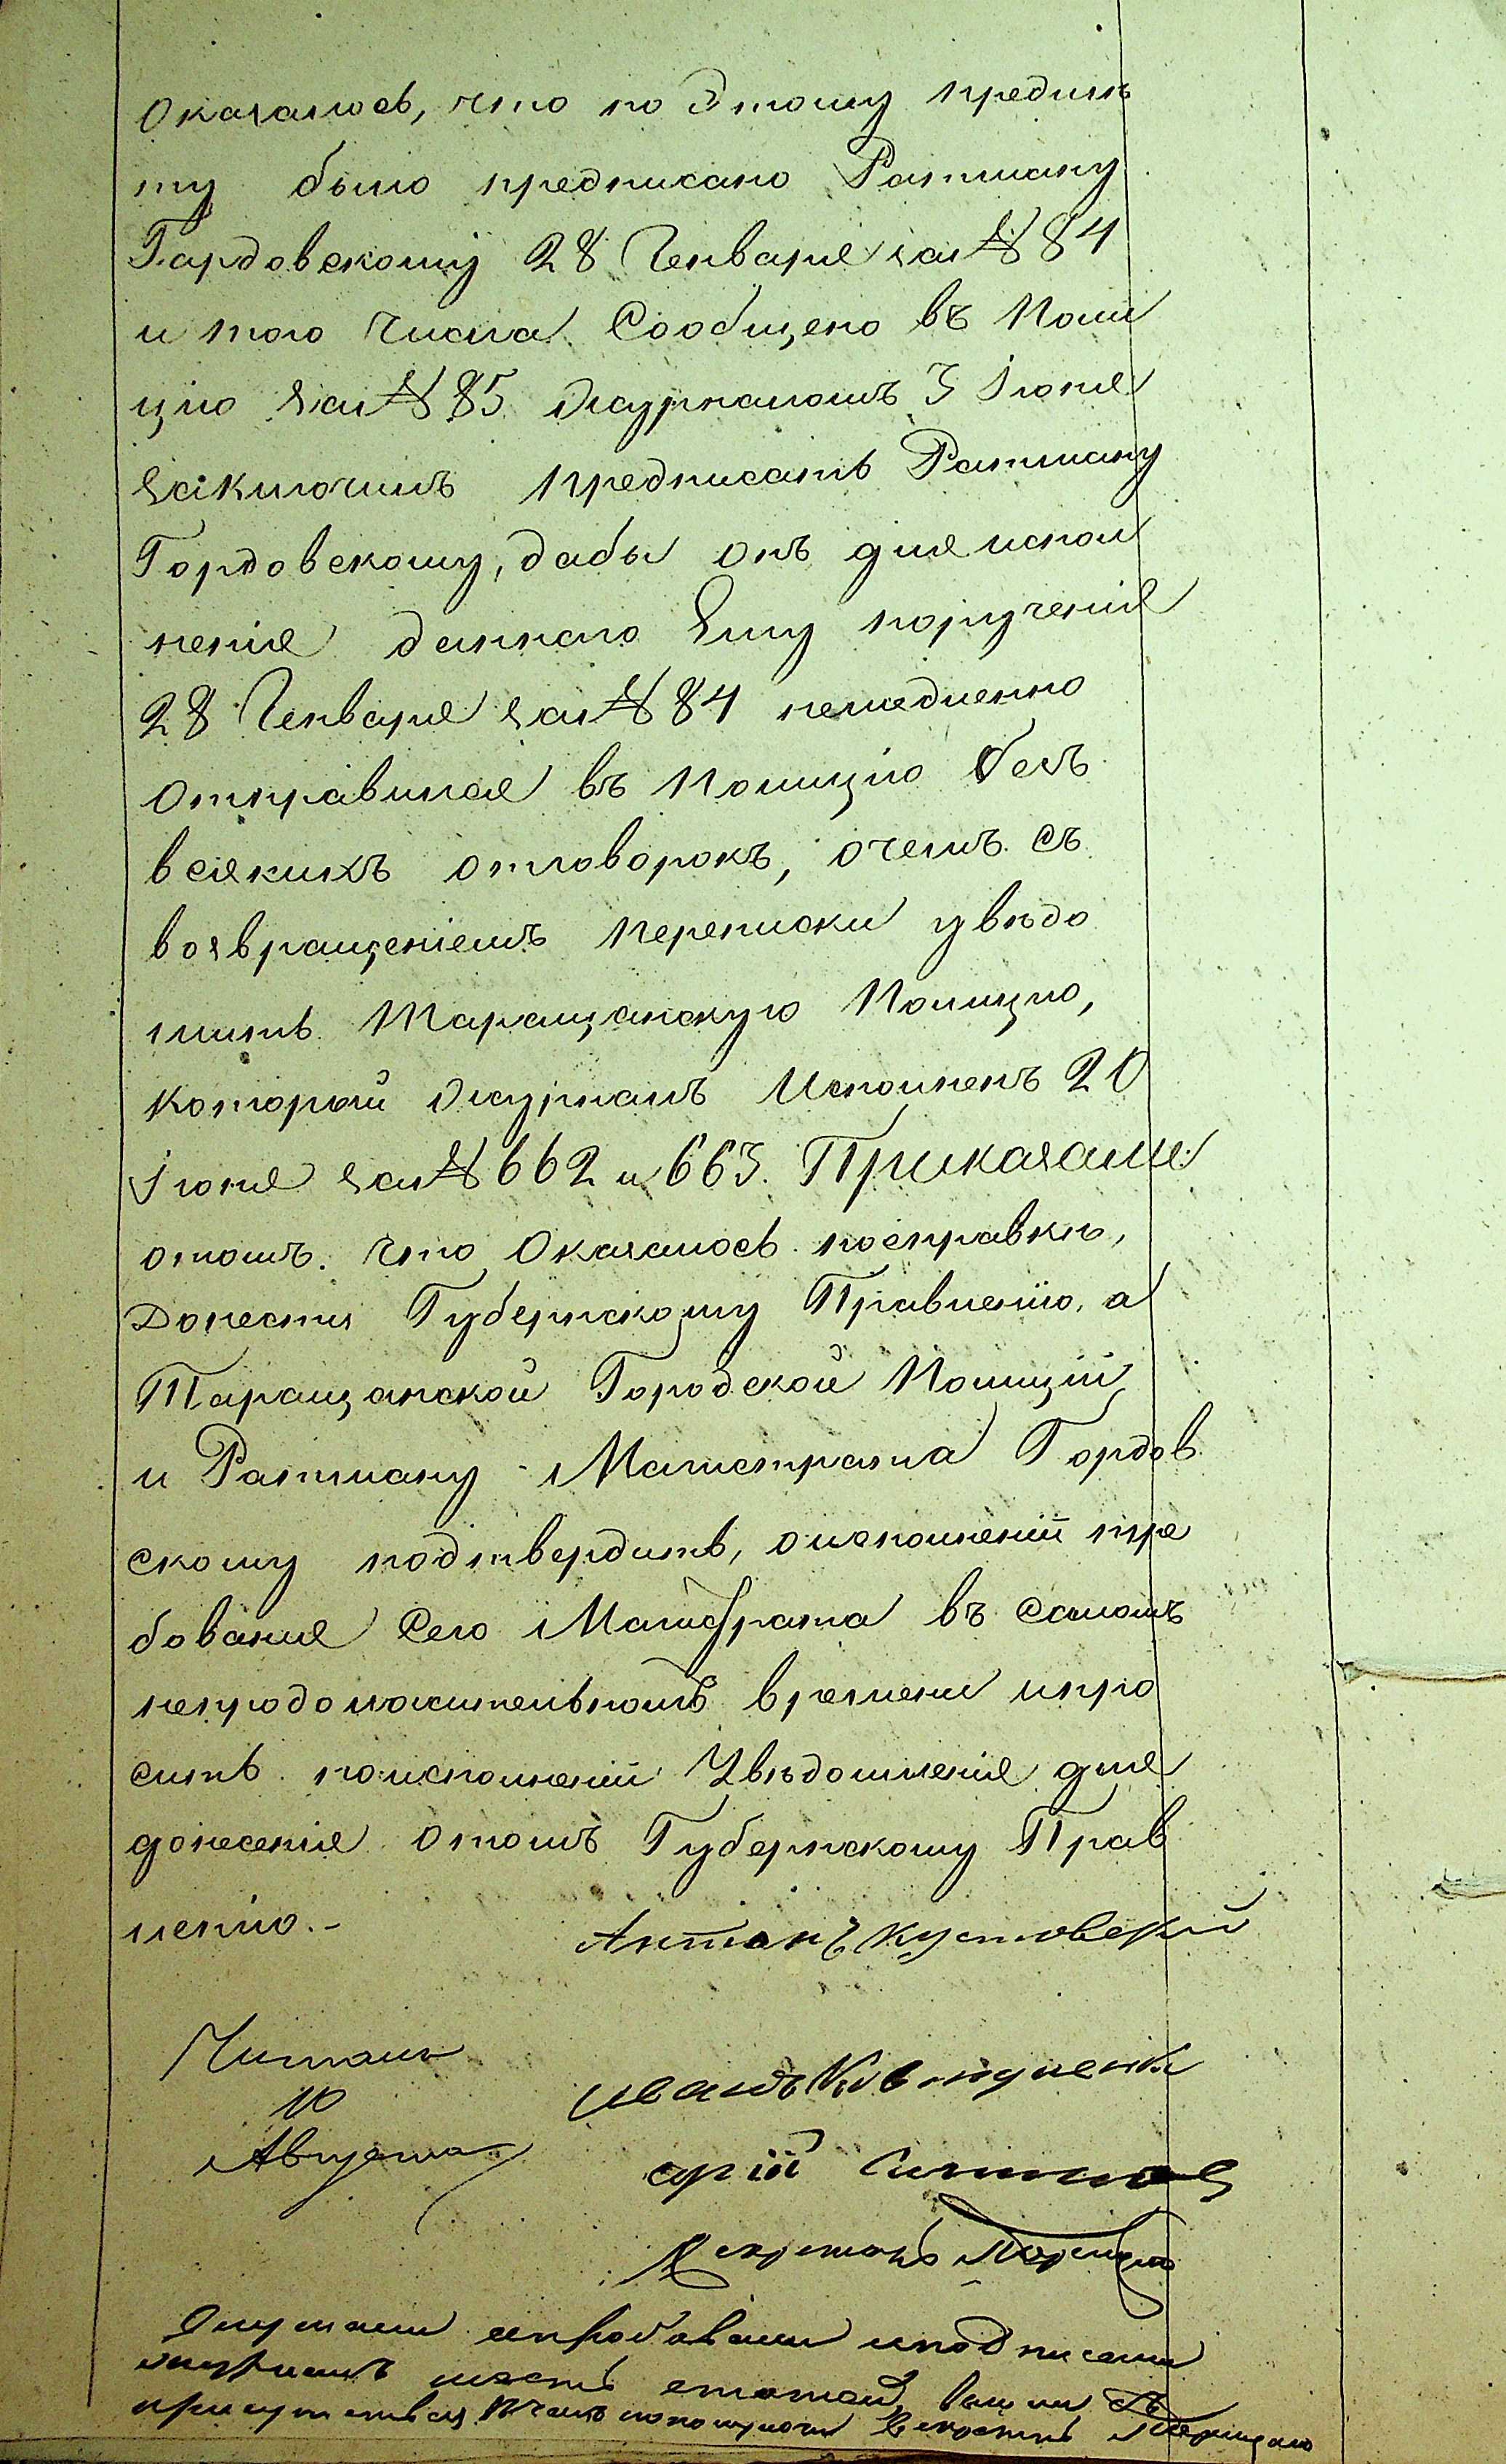 Оказалось, что по Этому предмѣ
ту было предписано Ратману
Гардовскому 28 Генваря за № 84
и того числа Сообщено въ Поли
цію за № 85 Журналомъ 3 Іюня
заключилъ предписать Ратману
Гордовскому, дабы онъ для испол
ненія даннаго Ему порученія
28 Генваря за № 84 немедленно
отправился въ Полицію безъ
всякихъ отговорокъ, очемъ съ
возвращеніемъ переписки увѣдо
мить Таращанскую Полицію,
который Журналъ Исполненъ 20
Іюня за № 662 и 663. Приказали:
отомъ. что Оказалось посправкѣ,
Донести Губернскому Правленію, а
Таращанской Городской Полиціи
и Ратману Магистрата Гордов
скому подтвердить, оисполненіи тре
бованія Сего Магистрата въ самомъ
непродолжительномъ времени ипро
сить поисполненіи Увѣдомленія для
донесенія отомъ Губернскому Прав
ленію.-
Антонъ Кустовский
Читалъ
10
Августа
Иванъ
Секретарь
Слушали ипробовали иподписали
журналъ шесть статей, были въ
присутствіи